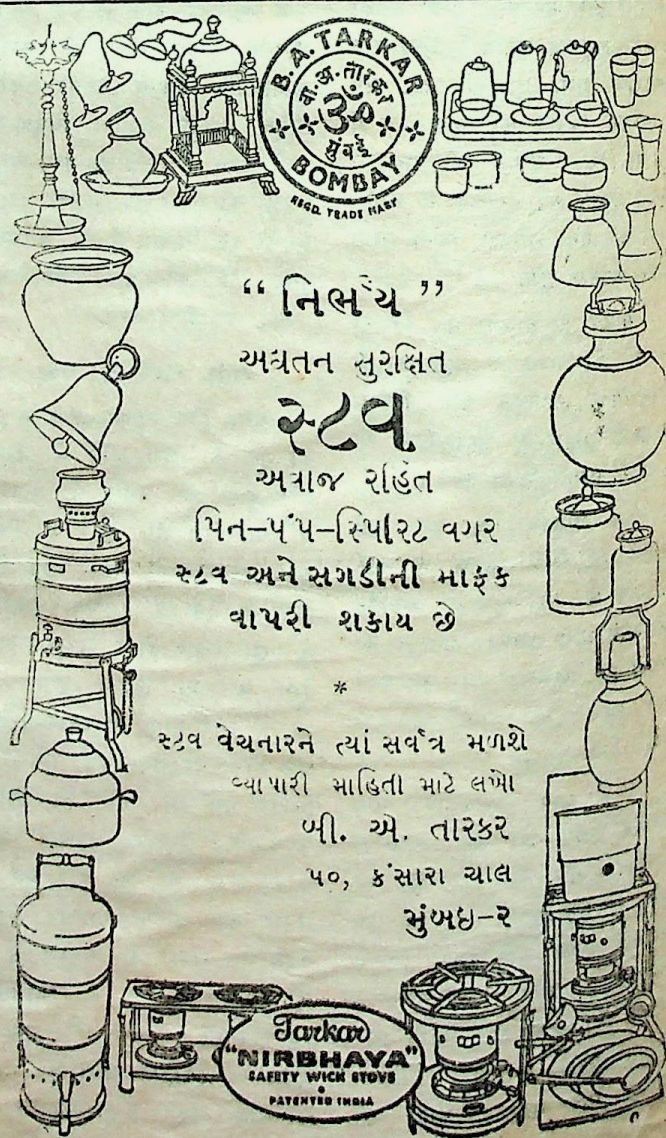 B. A. TARKAR
બા. અ. તારકર
ॐ
મુંબઈ
BOMBAY
REGD. TRADE MART
“ નિર્ભય ”
અદ્યતન સુરક્ષિત
સ્ટવ
અવાજ રહિત
પિન–પંપ–સ્પિરિટ વગર
સ્ટવ અને સગડીની માફક
વાપરી શકાય છે
*
સ્ટવ વેચનારને ત્યાં સર્વત્ર મળશે
વ્યાપારી માહિતી માટે લખો
બી. એ. તારકર
૫૦, કંસારા ચાલ
મુંબઇ–૨
Tarkar
"NIRBHAYA"
SAFETY WICK STOVE
PATENTED INDIA